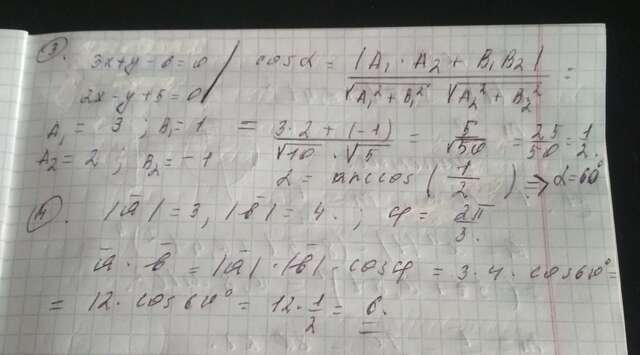 3. 3x+y-6=0 cosα = |A₁·A₂+B₁B₂| / √A₁²+B₁² √A₂²+B₂² =
2x-y+5=0
A₁ = 3 ; B₁ = 1 = 3·2+(-1) / √10 · √5 = 5/√50 = 25/50 = 1/2.
A₂ = 2 ; B₂ = -1 α = arccos (1/2) => α=60°
4. |a̅| = 3, |b̅| = 4. ; φ = 2π/3.
a̅ · b̅ = |a̅| · |b̅| · cosφ = 3·4· cos60° =
= 12· cos60° = 12· 1/2 = 6.